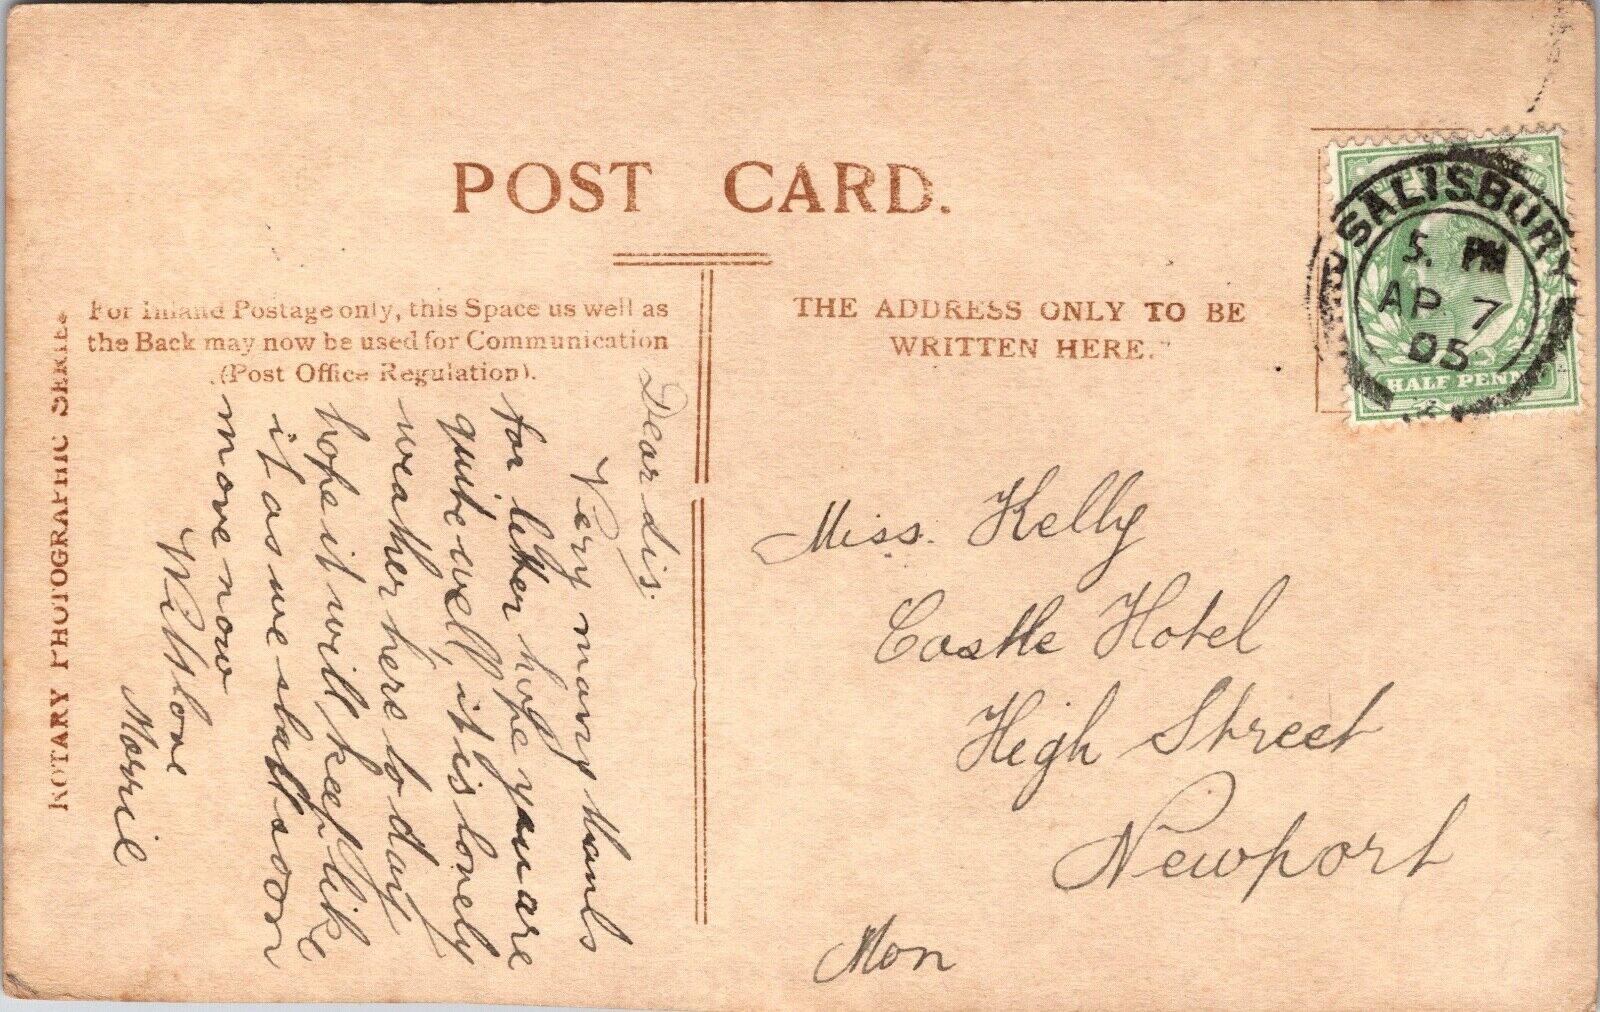 POST CARD.
For Inland Postage only, this Space as well as
the Back may now be used for Communication
(Post Office Regulation).
THE ADDRESS ONLY TO BE
WRITTEN HERE.
ROTARY PHOTOGRAPHIC SERIES
SALISBURY
5. PM
AP 7
05
HALF PENNY
Dear Sis.
Very many thanks
for letter hope you are
quite well, it is lonely
weather here to day
hope it will keep like
it as we shall soon
move now
With love
Morrie
Miss. Kelly
Castle Hotel
High Street
Newport
Mon